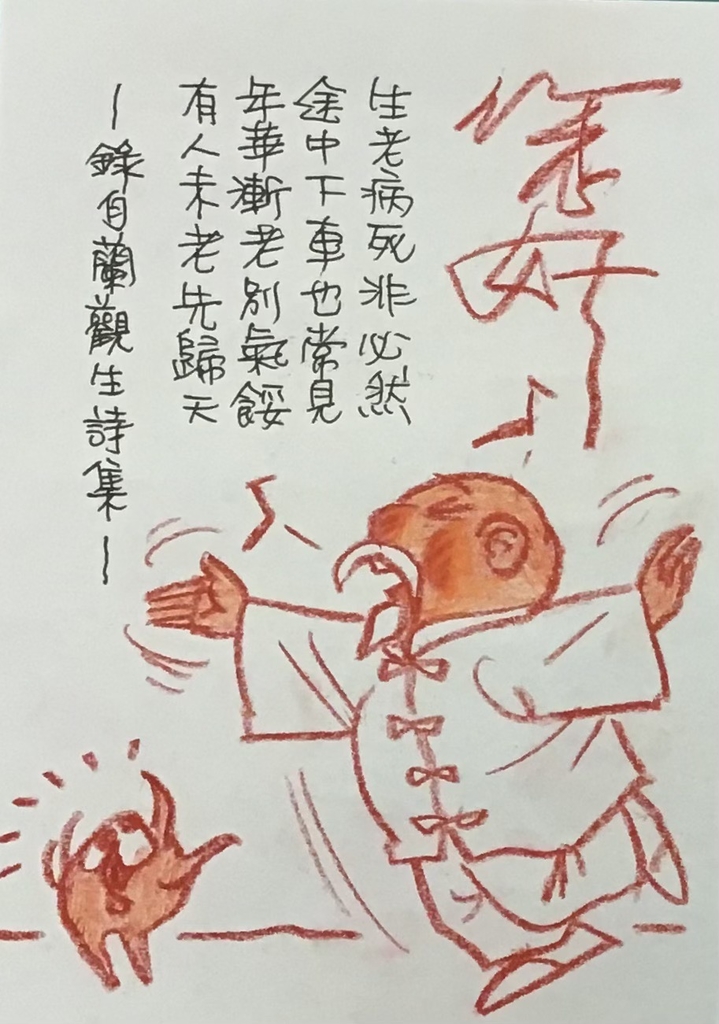 好
生老病死非必然
途中下車也常見
年華漸老別氣餒
有人未老先歸天
—錄自蘭觀生詩集—